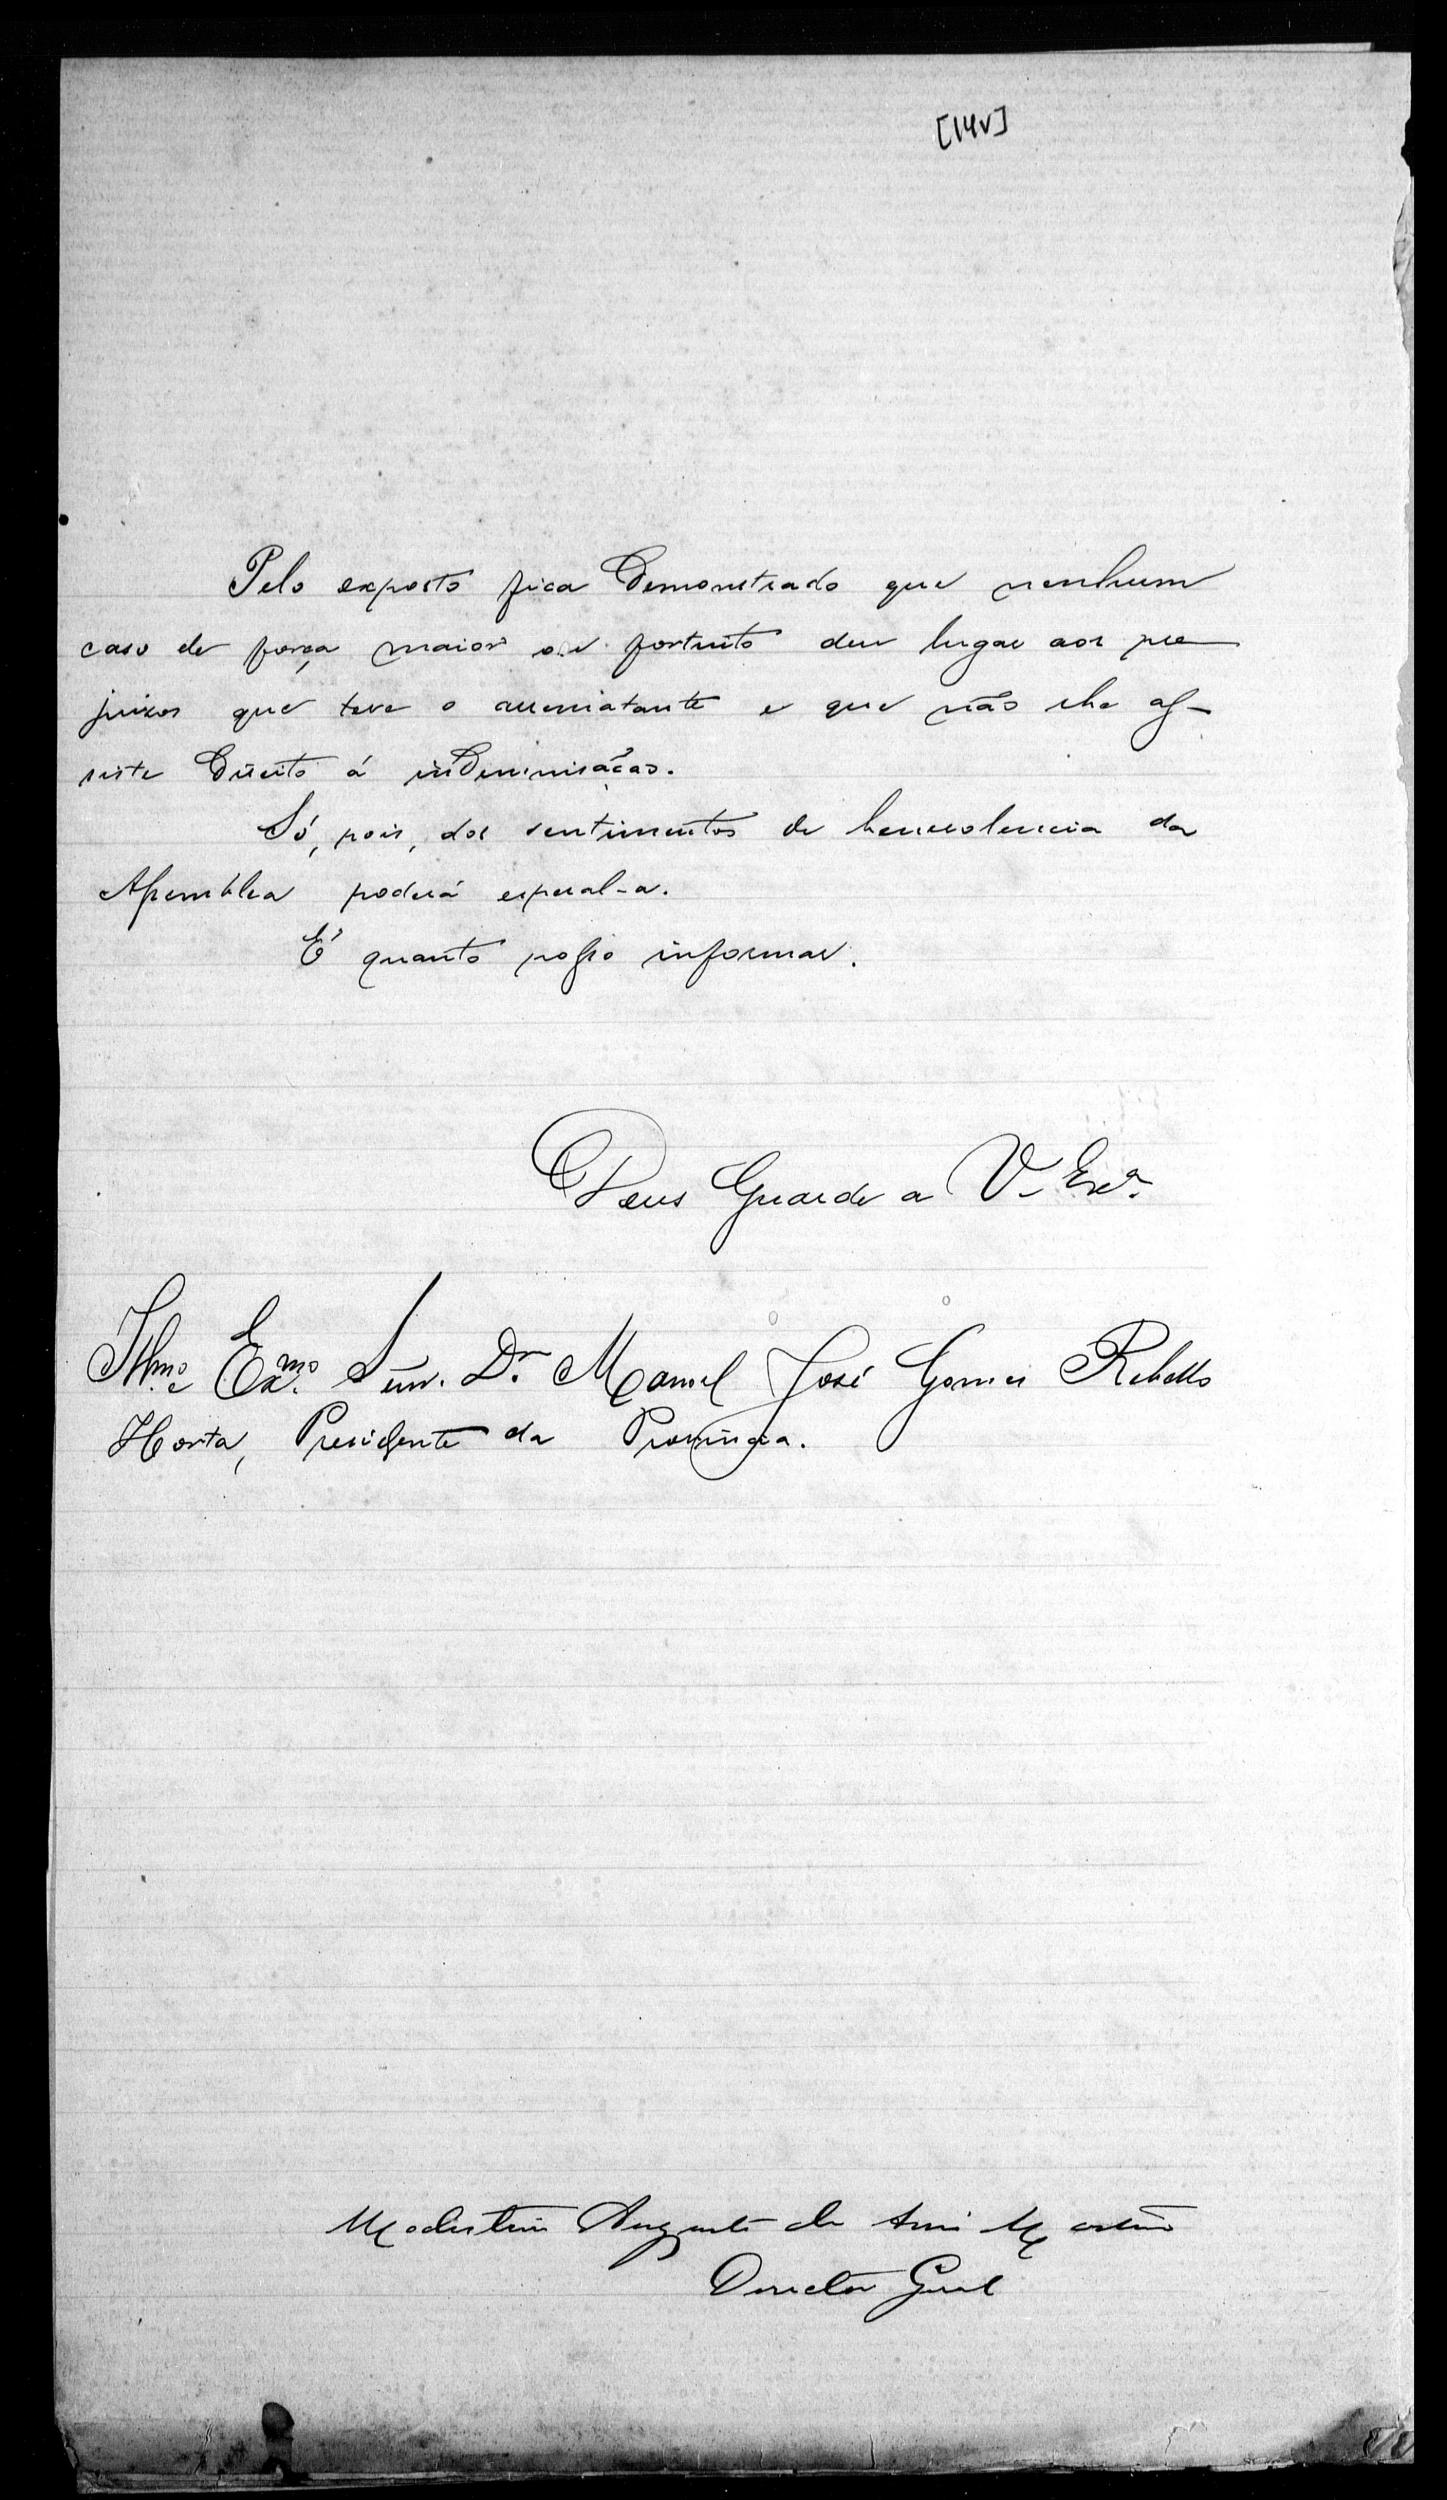 [14v]
Pelo exposto fica demonstrado que nenhum
caso de força maior ou fortuito deu lugar aos pre-
juizos que teve o arrematante e que não lhe as-
siste direito á indemnisação.
Só, pois, dos sentimentos de benevolencia da
Assembléa poderá esperal-a.
É quanto posso informar.
Deus Guarde a V. Exª.
Illmo. e Exmo. Snr. Dr. Manoel José Gomes Rebello
Horta, Presidente da Provincia.
Augusto de Assis Martins
Director Geral